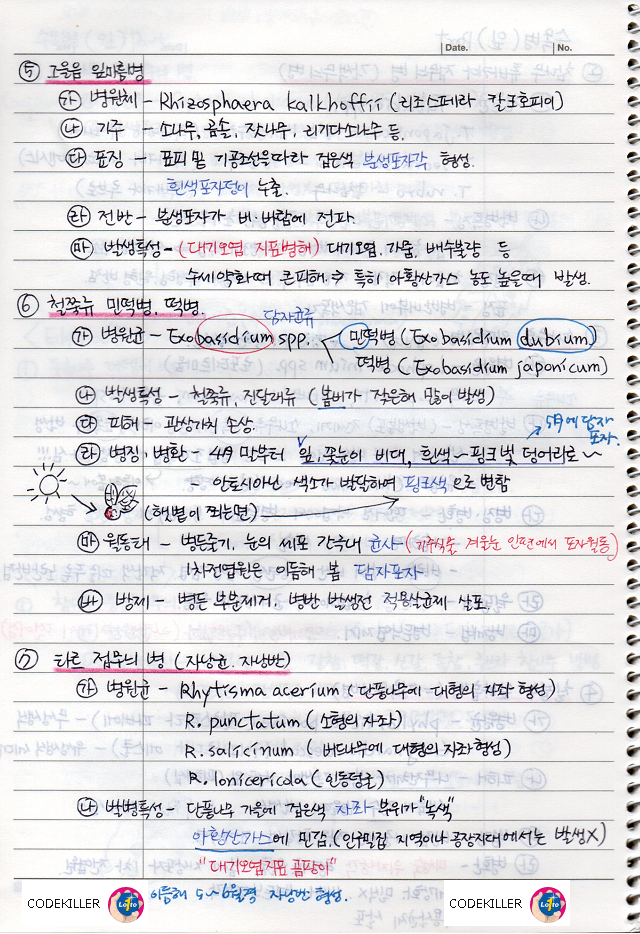 Date. No.
⑤ 그을음 잎마름병
㉮ 병원체 - Rhizosphaera kalkhoffii (리조스페라 칼크호피이)
㉯ 기주 - 소나무, 곰솔, 잣나무, 리기다소나무 등.
㉰ 표징 - 표피 및 기공조선을따라 검은색 분생포자각 형성.
흰색포자덩이 누출.
㉱ 전반 - 분생포자가 비·바람에 전파.
㉲ 발생특성 - (대기오염 지표병해) 대기오염, 가뭄, 배수불량 등
수세약화때 큰피해 → 특히 아황산가스 농도 높을때 발생.
⑥ 철쭉류 민떡병, 떡병.
담자균류
㉮ 병원균 - Exobasidium spp. 민떡병 (Exobasidium dubium)
떡병 (Exobasidium japonicum)
㉯ 발생특성 - 철쭉류, 진달래류 (봄비가 잦은해 많이 발생)
㉰ 피해 - 관상가치 손상.
5月에 담자포자.
㉱ 병징·병환 - 4月말부터 잎, 꽃눈이 비대, 흰색~핑크빛 덩어리로~
- 안토시아닌 색소가 발달하여 핑크색으로 변함
(햇볕이 쬐는면)
㉲ 월동태 - 병든줄기, 눈의 세포 간극내 균사 (기주식물 겨울눈 인편에서 포자월동)
1차전염원은 이듬해 봄 담자포자
㉳ 방제 - 병든 부분제거, 병반 발생전 적용살균제 살포.
⑦ 타르 점무늬 병 (자낭균, 자낭반)
㉮ 병원균 - Rhytisma acerium (단풍나무에 대형의 자좌 형성)
R. punctatum (소형의 자좌)
R. salicinum (버드나무에 대형의 자좌형성)
R. lonicericola (인동덩굴)
㉯ 발병특성 - 단풍나무 가을에 검은색 자좌 부위가 "녹색"
아황산가스에 민감, (인구밀집 지역이나 공장지대에서는 발생X)
"대기오염지표 곰팡이"
이듬해 5~6월경 자낭반 형성.
CODEKILLER Lotto CODEKILLER Lotto